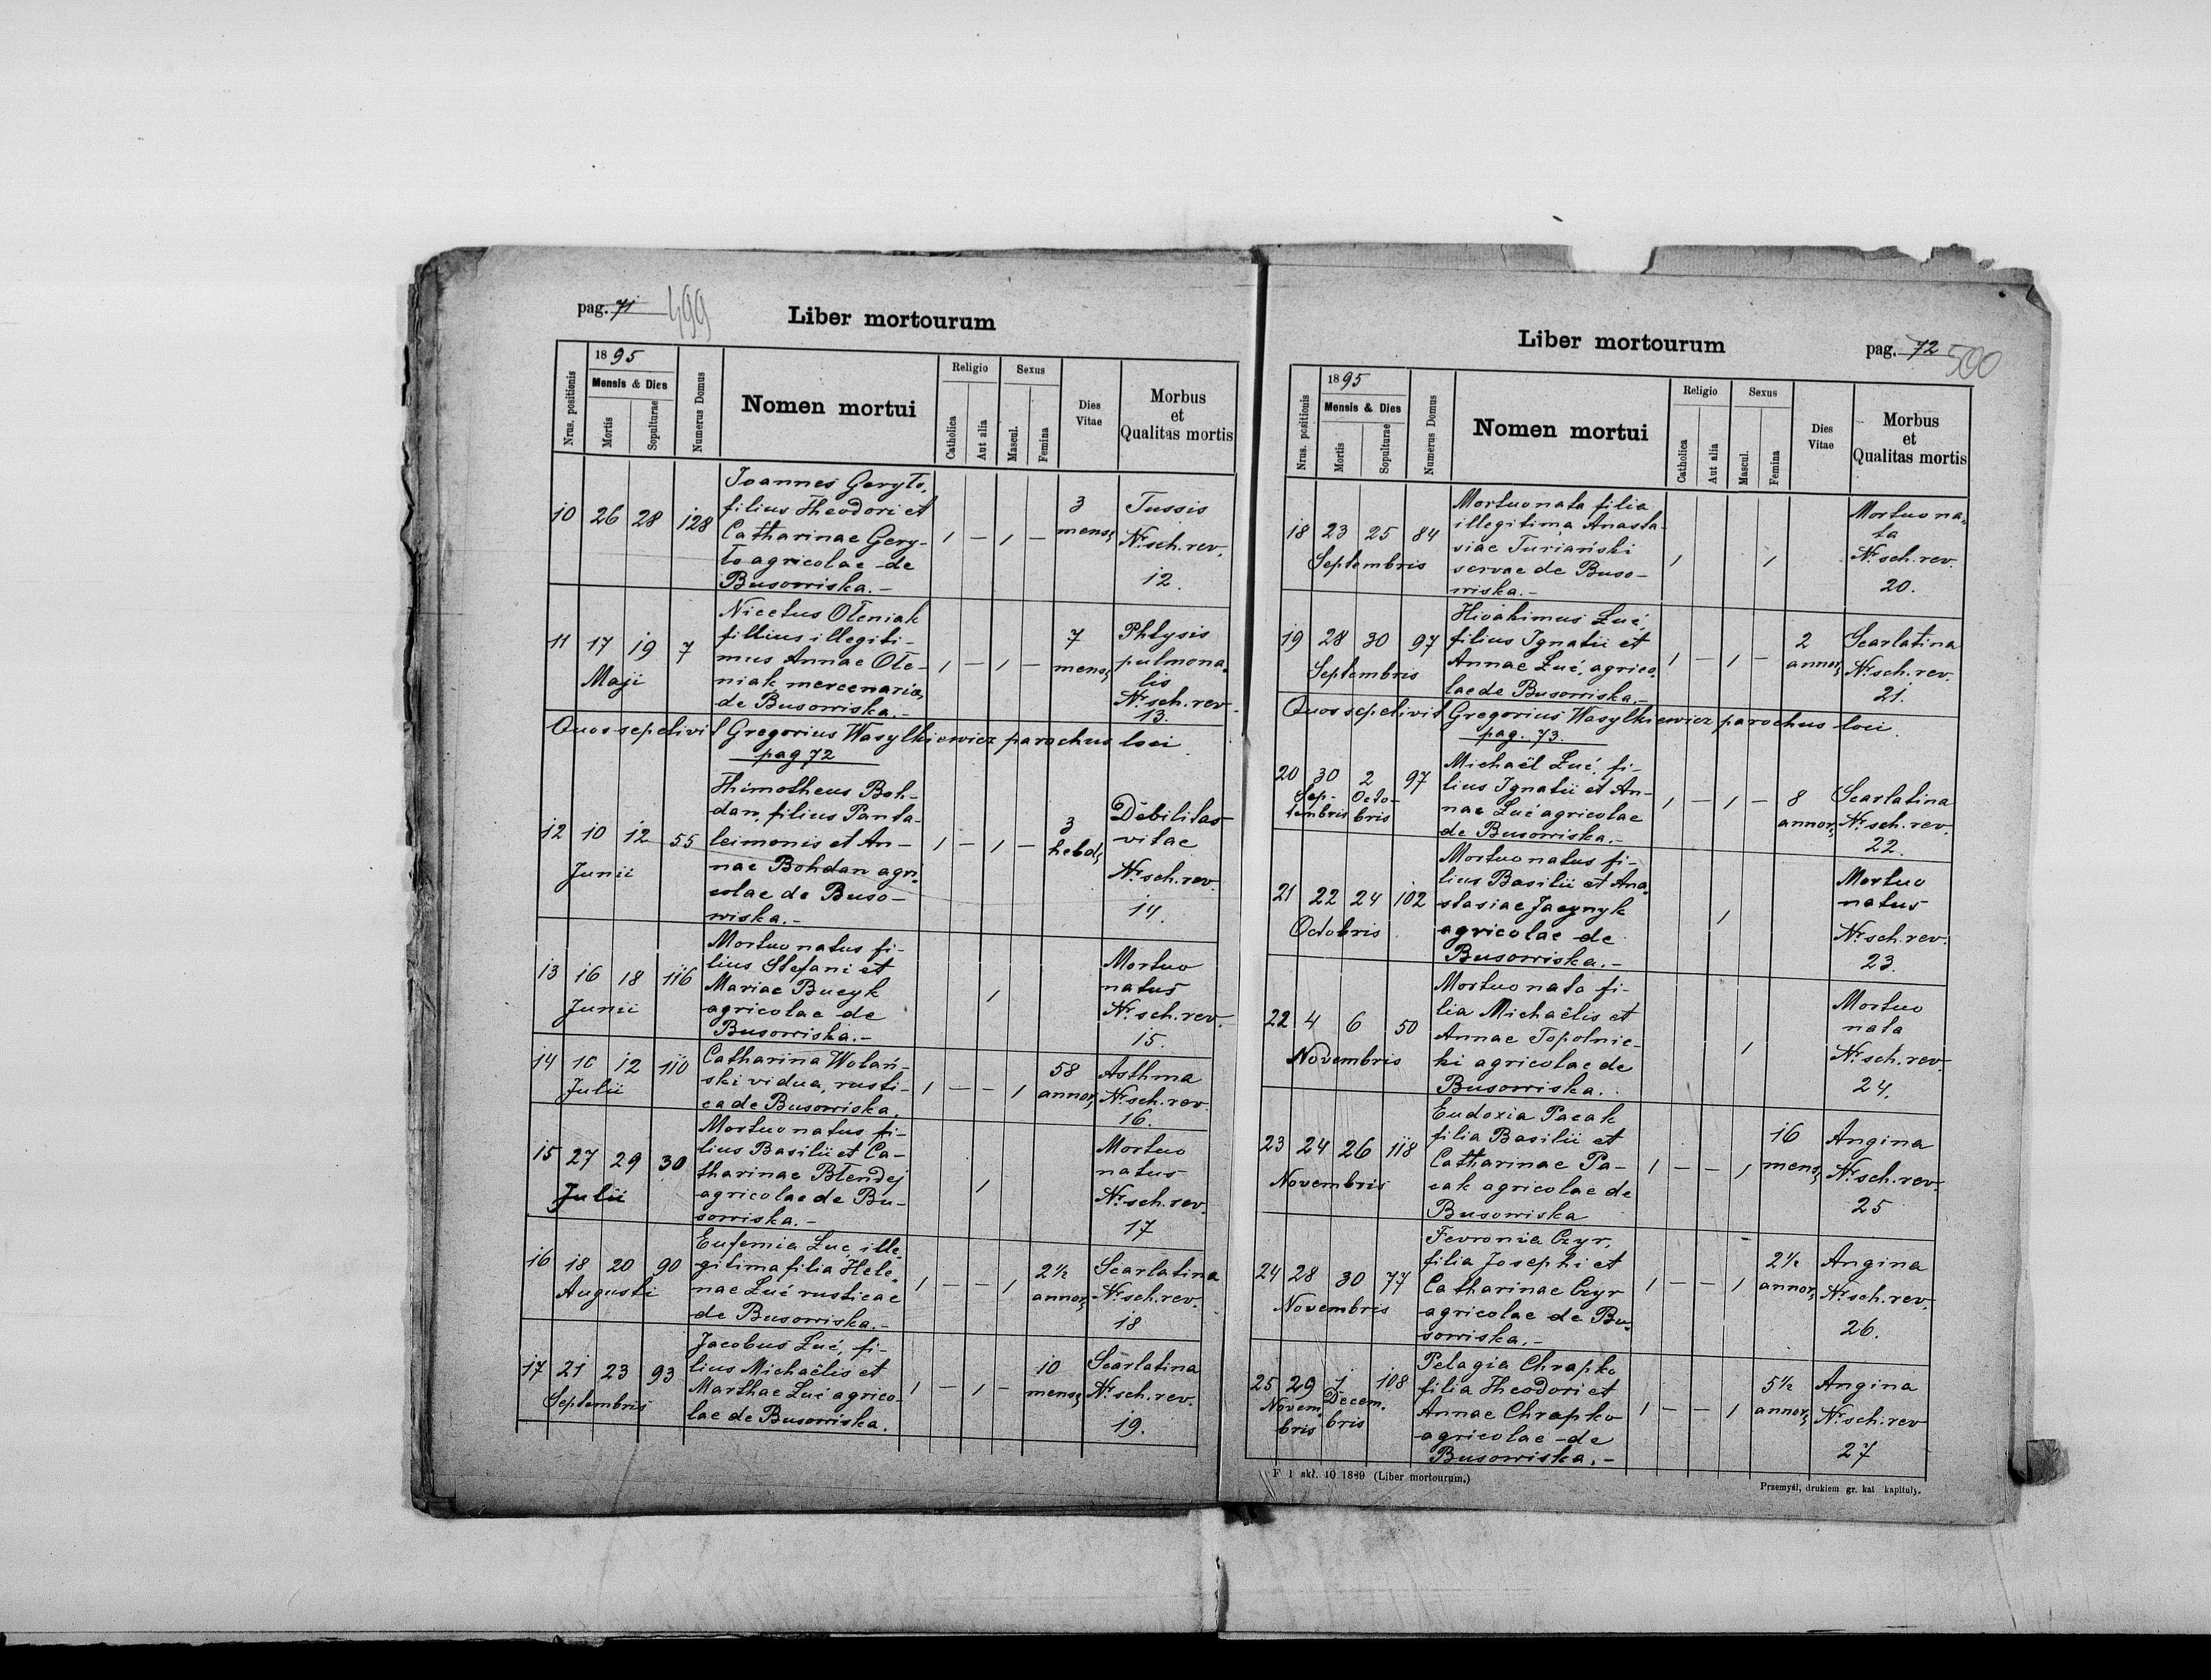 pag. 71 499
Liber mortourum
Nrus. positionis
1895
Mensis & Dies
Mortis
Sepulturae
Numerus Domus
Nomen mortui
Religio
Catholica
Aut alia
Sexus
Mascul.
Femina
Dies
Vitae
Morbus
et
Qualitas mortis
10 26 28 128
Joannes Geryło,
filius Theodori et
Catharinae Gery-
ło agricolae de
Busowiska.-
1 - 1 -
3
mens,
Tussis
Nr sch. rev.
12.
11 17 19 7
Maji
Nicetus Oleniak
fillius illegiti-
mus Annae Ole-
niak mercenariae
de Busowiska.-
1 - 1 -
7
mens,
Phtysis
pulmona-
lis
Nr sch. rev.
13.
Quos sepelivit Gregorius Wasylkiewicz parochus loci
pag 72
12 10 12 55
Junii
Thimotheus Boh-
dan, filius Panta-
leimonis et An-
nae Bohdan agri-
colae de Buso-
wiska.-
1 - 1 -
3
hebd,
Debilitas
vitae
Nr sch. rev.
14.
13 16 18 116
Junii
Mortuo natus fi-
lius Stefani et
Mariae Bucyk
agricolae de
Busowiska.-
1
Mortuo
natus
Nr sch. rev.
15.
14 10 12 110
Julii
Catharina Wolań-
ski vidua, rusti-
ca de Busowiska.
1 - - 1
58
annor,
Asthma
Nr sch. rev.
16.
15 27 29 30
Julii
Mortuo natus fi-
lius Basilii et Ca-
tharinae Blendej
agricolae de Bu-
sowiska.-
1
Mortuo
natus
Nr sch. rev.
17
16 18 20 90
Augusti
Eufemia Łuć, ille-
gitima filia Hele-
nae Łuć rusticae
de Busowiska.-
1 - - 1
2½
annor,
Scarlatina
Nr sch. rev.
18
17 21 23 93
Septembris
Jacobus Łuć, fi-
lius Michaëlis et
Marthae Łuć agrico-
lae de Busowiska.
1 - 1 -
10
mens,
Scarlatina
Nr sch. rev.
19.
Liber mortourum
pag. 72 500
Nrus. positionis
1895
Mensis & Dies
Mortis
Sopulturae
Numerus Domus
Nomen mortui
Religio
Catholica
Aut alia
Sexus
Mascul.
Femina
Dies
Vitae
Morbus
et
Qualitas mortis
18 23 25 84
Septembris
Mortuo nata filia
illegitima Anasta-
siae Turiański
servae de Buso-
wiska.-
1 1
Mortuo na-
ta
Nr sch. rev.
20.
19 28 30 97
Septembris
Hioakimus Łuć,
filius Ignatii et
Annae Łuć, agrico-
lae de Busowiska.-
1 - 1 -
2
annor,
Scarlatina
Nr sch. rev.
21.
Quos sepelivit Gregorius Wasylkiewicz parochus loci.
pag. 73.
20 30 2 97
Sep- Octo-
tembris bris
Michaël Łuć, fi-
lius Ignatii et An-
nae Łuć agricolae
de Busowiska.-
1 - 1 -
8
annor,
Scarlatina
Nr sch. rev.
22.
21 22 24 102
Octobris
Mortuo natus fi-
lius Basilii et Ana-
stasiae Jacynyk
agricolae de
Busowiska.-
1
Mortuo
natus
Nr sch. rev.
23.
22 4 6 50
Novembris
Mortuo nata fi-
lia Michaëlis et
Annae Topolnic-
ki agricolae de
Busowiska.
1
Mortuo
nata
Nr sch. rev.
24.
23 24 26 118
Novembris
Eudoxia Pacak
filia Basilii et
Catharinae Pa-
cak agricolae de
Busowiska
1 - - 1
16
mens,
Angina
Nr sch. rev.
25
24 28 30 77
Novembris
Fevronia Czyr,
filia Josephi et
Catharinae Czyr
agricolae de Bu-
sowiska.-
1 - - 1
2½
annor,
Angina
Nr sch. rev.
26.
25 29 1 108
Novem- Decem-
bris bris
Pelagia Chrapko
filia Theodori et
Annae Chrapko
agricolae de
Busowiska.-
1 - - 1
5½
annor,
Angina
Nr sch. rev
27
F 1 skł. 10 1889 (Liber mortourum.)
Przemyśl, drukiem gr. kat kapituły.